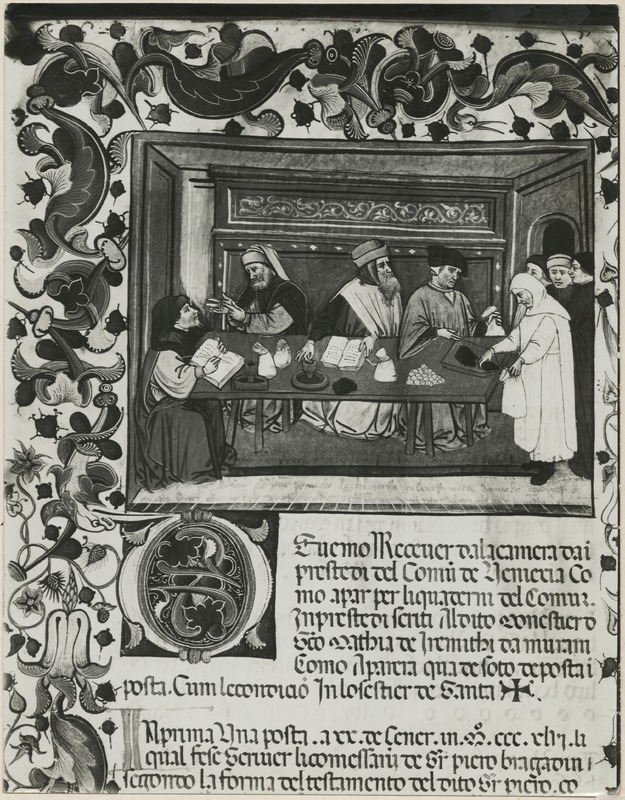 Euemo Receuer dala camera dai
prestedi del Comū de Veniexia Co
mo apar per li quaderni del Comur.
Inprestedi scriti Al dito Monestier đ
Sc̄o Mathia de Iremithi da muram
Como Aparera qua de soto de posta ī
posta. Cum le condicio In lo sestier de Santa ✠
INprima Una posta .a xx. de Gener. in. M̊. ccc. xliij. li
qual fese Scriuer li comessarij de S̄r piero bragadin i
segondo la forma del testamento del dito S̄r piero. co